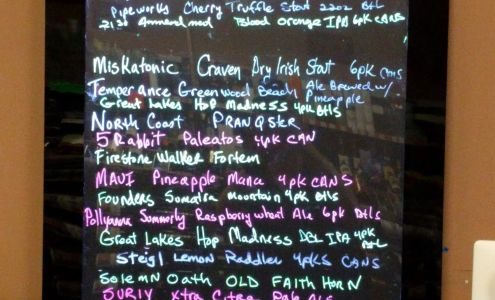 Pipeworks Cherry Truffle Stout 22oz Btl
21st Ammendmod Blood Orange IPA 6pk CANS
Miskatonic Craven Dry Irish Stout 6pk CANS
Temperance Greenwood Beach Ale Brewed w/ Pineapple
Great Lakes Hop Madness 4pk Btls
North Coast PRANQSTER
5 Rabbit Paleatos 4pk CAN
Firestone Walker Forlem
MAUI Pineapple Mana 4pk CANS
Founders Sumatra Mountain 4pk Btls
Pollyanna Summerly Raspberry wheat Ale 6pk Btls
Great Lakes Hop Madness DBL IPA 4pk Btl
Steigl Lemon Raddler 4pks CANS
Solemn Oath OLD FAITH HORN
SURLY Xtra Citra Pale Ale